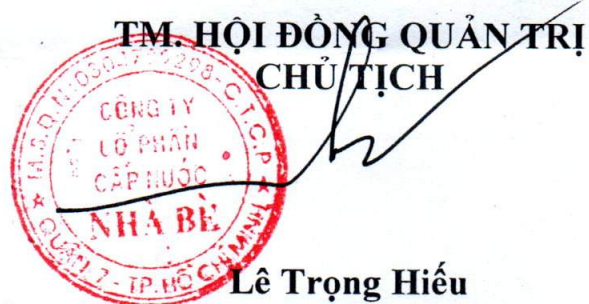 TM. HỘI ĐỒNG QUẢN TRỊ
CHỦ TỊCH
CÔNG TY
CỔ PHẦN
CẤP NƯỚC
NHÀ BÈ
QUẬN 7 - TP. HỒ CHÍ MINH
Lê Trọng Hiếu